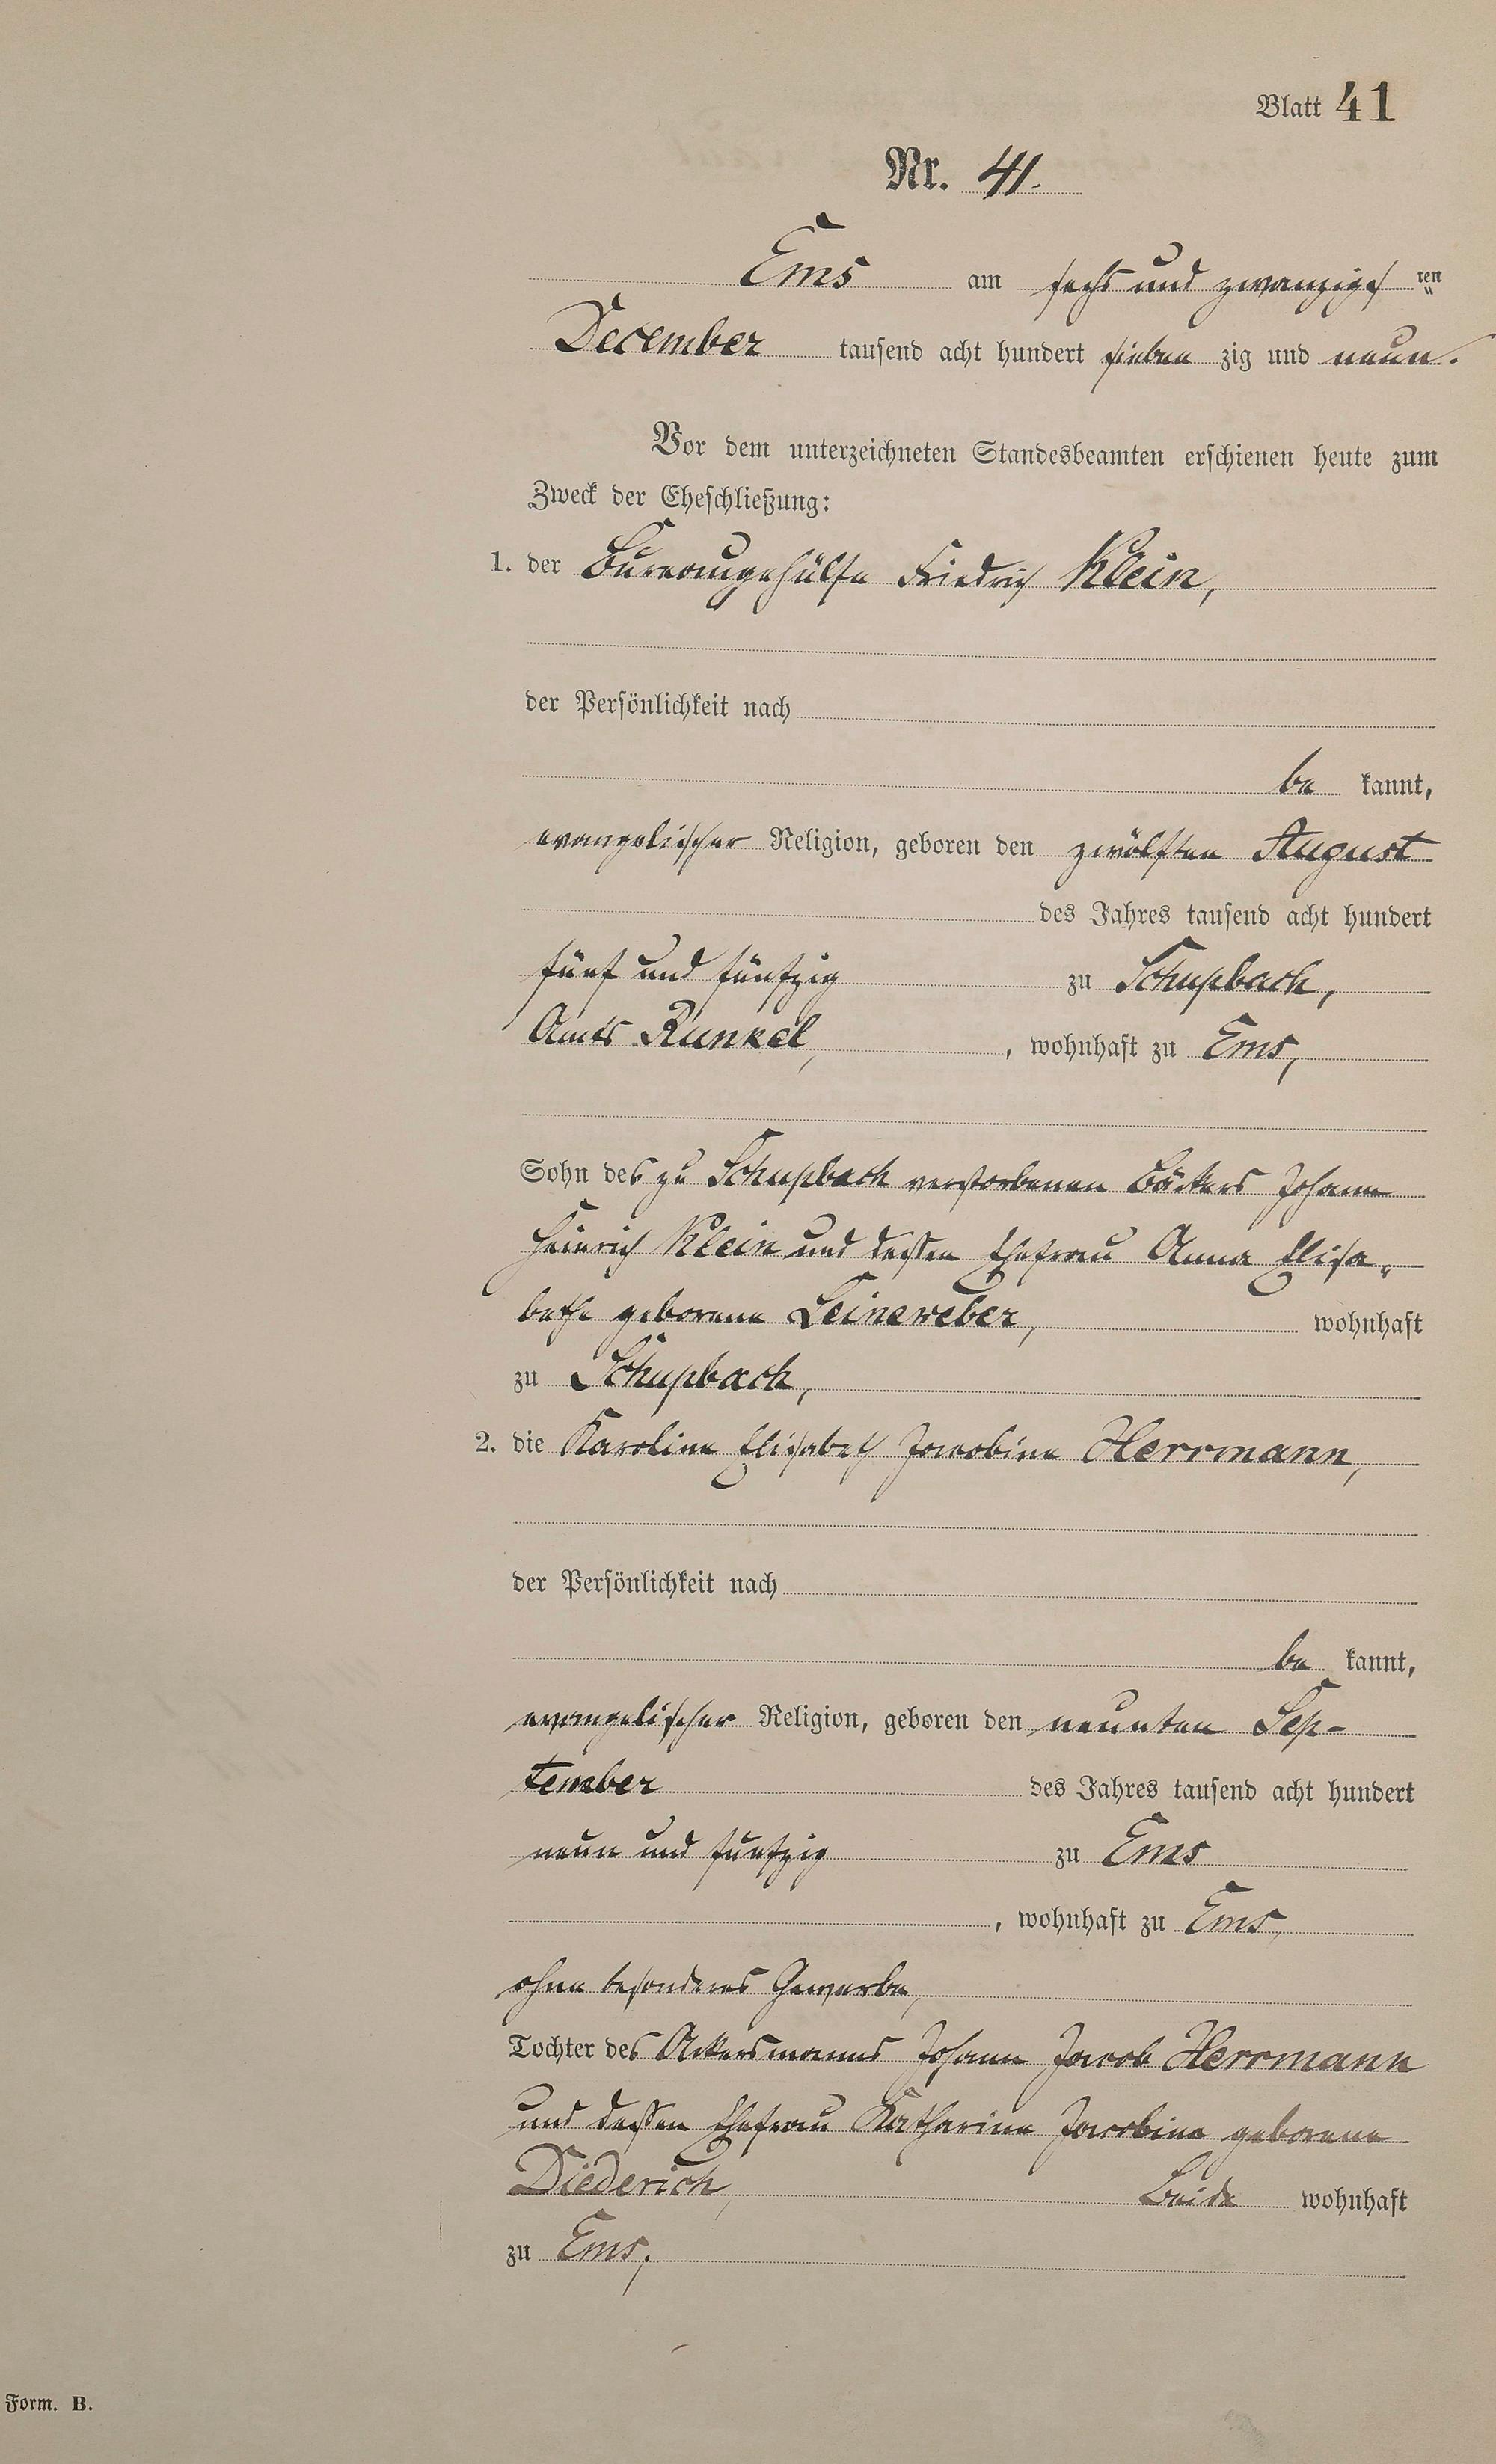 Blatt 41
Nr. 41.
Ems am sechs und zwanzigs ten
December tausend acht hundert sieben zig und neun.
Vor dem unterzeichneten Standesbeamten erschienen heute zum
Zweck der Eheschließung:
1. der Bureaugehülfe Friedrich Klein,
der Persönlichkeit nach
be kannt,
evangelischer Religion, geboren den zwölften August
des Jahres tausend acht hundert
fünf und fünfzig zu Schupbach,
Amts Runkel, , wohnhaft zu Ems,
Sohn des zu Schupbach verstorbenen Bäckers Johann
Heinrich Klein und dessen Ehefrau Anna Elisa„
bethe geborene Leineweber, wohnhaft
zu Schupbach,
2. die Karoline Elisabeth Jacobine Herrmann,
der Persönlichkeit nach
be kannt,
evangelischer Religion, geboren den neunten Sep-
tember des Jahres tausend acht hundert
neun und fünfzig zu Ems
, wohnhaft zu Ems,
ohne besonderes Gewerbe,
Tochter des Ackersmanns Johann Jacob Herrmann
und dessen Ehefrau Katharine Jacobine geborene
Diederich, Beide wohnhaft
zu Ems,
Form. B.